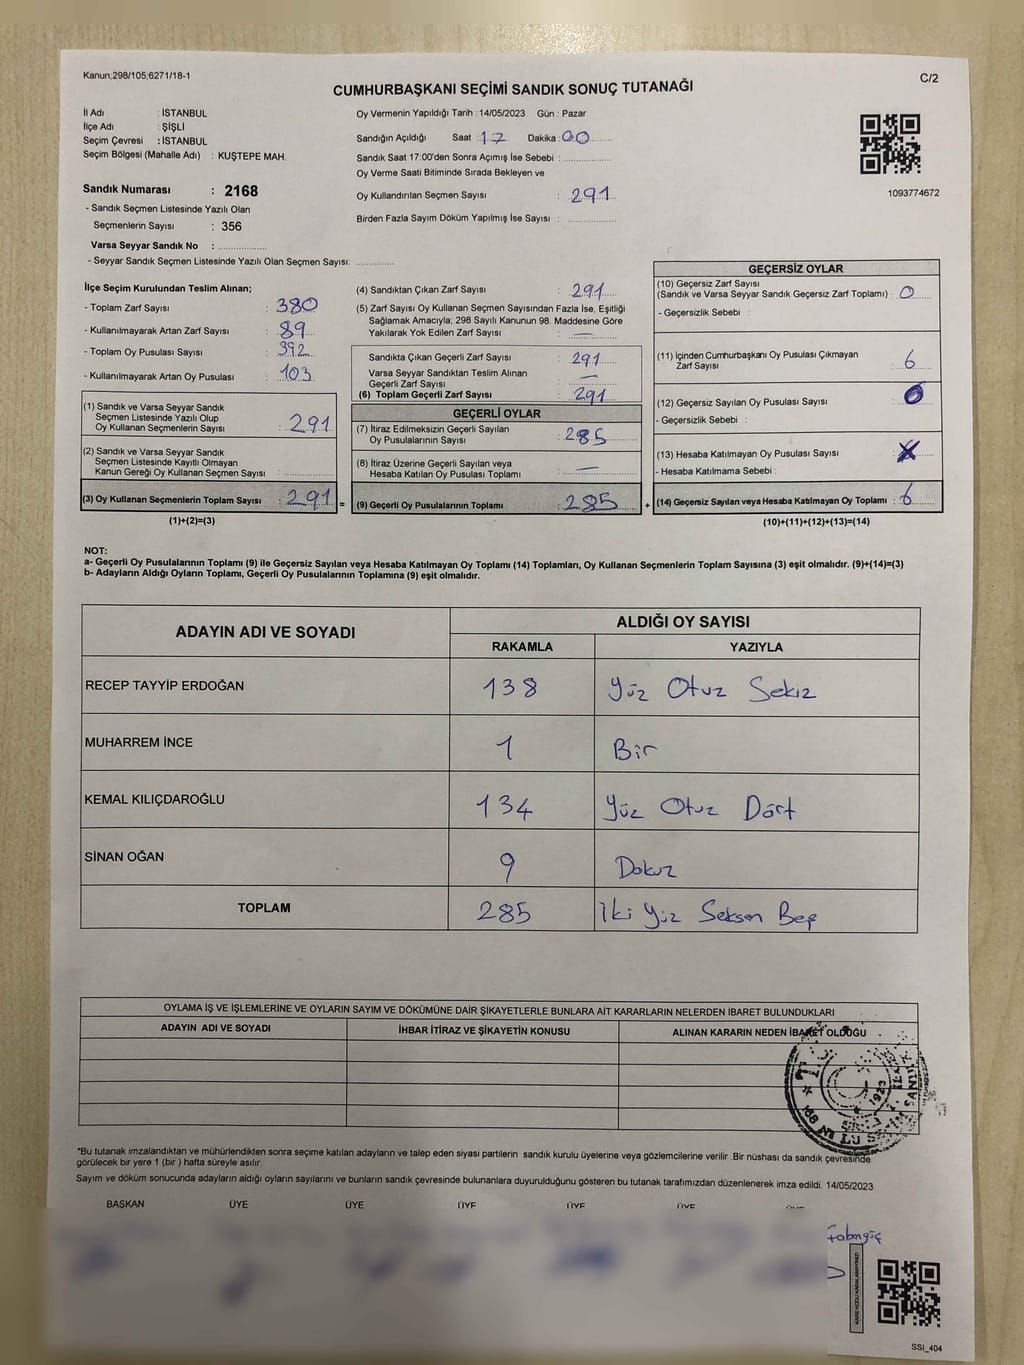 Kanun;298/105;6271/18-1
C/2
CUMHURBAŞKANI SEÇİMİ SANDIK SONUÇ TUTANAĞI
İl Adı : İSTANBUL
İlçe Adı : ŞİŞLİ
Seçim Çevresi : İSTANBUL
Seçim Bölgesi (Mahalle Adı) : KUŞTEPE MAH.
Sandık Numarası : 2168
- Sandık Seçmen Listesinde Yazılı Olan
Seçmenlerin Sayısı : 356
Varsa Seyyar Sandık No : ..................
- Seyyar Sandık Seçmen Listesinde Yazılı Olan Seçmen Sayısı: ..............
Oy Vermenin Yapıldığı Tarih : 14/05/2023 Gün : Pazar
Sandığın Açıldığı Saat : 17 Dakika : 00
Sandık Saat 17:00'den Sonra Açımış İse Sebebi : ..................
Oy Verme Saati Bitiminde Sırada Bekleyen ve
Oy Kullandırılan Seçmen Sayısı : 291
Birden Fazla Sayım Döküm Yapılmış İse Sayısı : ..................
1093774672
İlçe Seçim Kurulundan Teslim Alınan;
- Toplam Zarf Sayısı : 380
- Kullanılmayarak Artan Zarf Sayısı : 89
- Toplam Oy Pusulası Sayısı : 392
- Kullanılmayarak Artan Oy Pusulası : 103
(1) Sandık ve Varsa Seyyar Sandık
Seçmen Listesinde Yazılı Olup
Oy Kullanan Seçmenlerin Sayısı : 291
(2) Sandık ve Varsa Seyyar Sandık
Seçmen Listesinde Kayıtlı Olmayan
Kanun Gereği Oy Kullanan Seçmen Sayısı : ..............
(3) Oy Kullanan Seçmenlerin Toplam Sayısı : 291 =
(1)+(2)=(3)
(4) Sandıktan Çıkan Zarf Sayısı : 291
(5) Zarf Sayısı Oy Kullanan Seçmen Sayısından Fazla İse, Eşitliği
Sağlamak Amacıyla; 298 Sayılı Kanunun 98. Maddesine Göre
Yakılarak Yok Edilen Zarf Sayısı : —
Sandıkta Çıkan Geçerli Zarf Sayısı : 291
Varsa Seyyar Sandıktan Teslim Alınan
Geçerli Zarf Sayısı : —
(6) Toplam Geçerli Zarf Sayısı : 291
GEÇERLİ OYLAR
(7) İtiraz Edilmeksizin Geçerli Sayılan
Oy Pusulalarının Sayısı : 285
(8) İtiraz Üzerine Geçerli Sayılan veya
Hesaba Katılan Oy Pusulası Toplamı : —
(9) Geçerli Oy Pusulalarının Toplamı : 285 +
GEÇERSİZ OYLAR
(10) Geçersiz Zarf Sayısı
(Sandık ve Varsa Seyyar Sandık Geçersiz Zarf Toplamı) : 0
- Geçersizlik Sebebi :
(11) İçinden Cumhurbaşkanı Oy Pusulası Çıkmayan
Zarf Sayısı : 6
(12) Geçersiz Sayılan Oy Pusulası Sayısı :
- Geçersizlik Sebebi :
(13) Hesaba Katılmayan Oy Pusulası Sayısı :
- Hesaba Katılmama Sebebi :
(14) Geçersiz Sayılan veya Hesaba Katılmayan Oy Toplamı : 6
(10)+(11)+(12)+(13)=(14)
NOT:
a- Geçerli Oy Pusulalarının Toplamı (9) ile Geçersiz Sayılan veya Hesaba Katılmayan Oy Toplamı (14) Toplamları, Oy Kullanan Seçmenlerin Toplam Sayısına (3) eşit olmalıdır. (9)+(14)=(3)
b- Adayların Aldığı Oyların Toplamı, Geçerli Oy Pusulalarının Toplamına (9) eşit olmalıdır.
ADAYIN ADI VE SOYADI ALDIĞI OY SAYISI
RAKAMLA YAZIYLA
RECEP TAYYİP ERDOĞAN 138 Yüz Otuz Sekiz
MUHARREM İNCE 1 Bir
KEMAL KILIÇDAROĞLU 134 Yüz Otuz Dört
SİNAN OĞAN 9 Dokuz
TOPLAM 285 İki Yüz Seksen Beş
OYLAMA İŞ VE İŞLEMLERİNE VE OYLARIN SAYIM VE DÖKÜMÜNE DAİR ŞİKAYETLERLE BUNLARA AİT KARARLARIN NELERDEN İBARET BULUNDUKLARI
ADAYIN ADI VE SOYADI İHBAR İTİRAZ VE ŞİKAYETİN KONUSU ALINAN KARARIN NEDEN İBARET OLDUĞU
T.C.
1923
*Bu tutanak imzalandıktan ve mühürlendikten sonra seçime katılan adayların ve talep eden siyasi partilerin sandık kurulu üyelerine veya gözlemcilerine verilir .Bir nüshası da sandık çevresinde
görülecek bir yere 1 (bir ) hafta süreyle asılır.
Sayım ve döküm sonucunda adayların aldığı oyların sayılarını ve bunların sandık çevresinde bulunanlara duyurulduğunu gösteren bu tutanak tarafımızdan düzenlenerek imza edildi. 14/05/2023
BAŞKAN ÜYE ÜYE ÜYE ÜYE ÜYE ÜYE
SSI_404